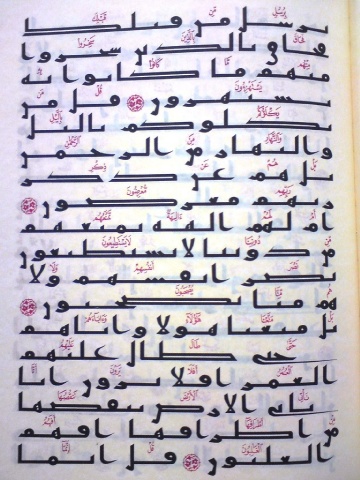 برسل من قبلك
فحاق بالذين سخروا
منهم ما كانوا به
يستهزون قل من
يكلوكم باليل
والنهار من الرحمن
بل هم عن ذكر
ربهم معرضون
ام لهم الهة تمنعهم
من دوننا لا يستطيعون
نصر انفسهم ولا
هم منا يصحبون
بل متعنا هولا واباهم
حتى طال عليهم
العمر افلا يرون انا
ناتي الارض ننقصها
من اطرافها افهم
الغلبون قل انما